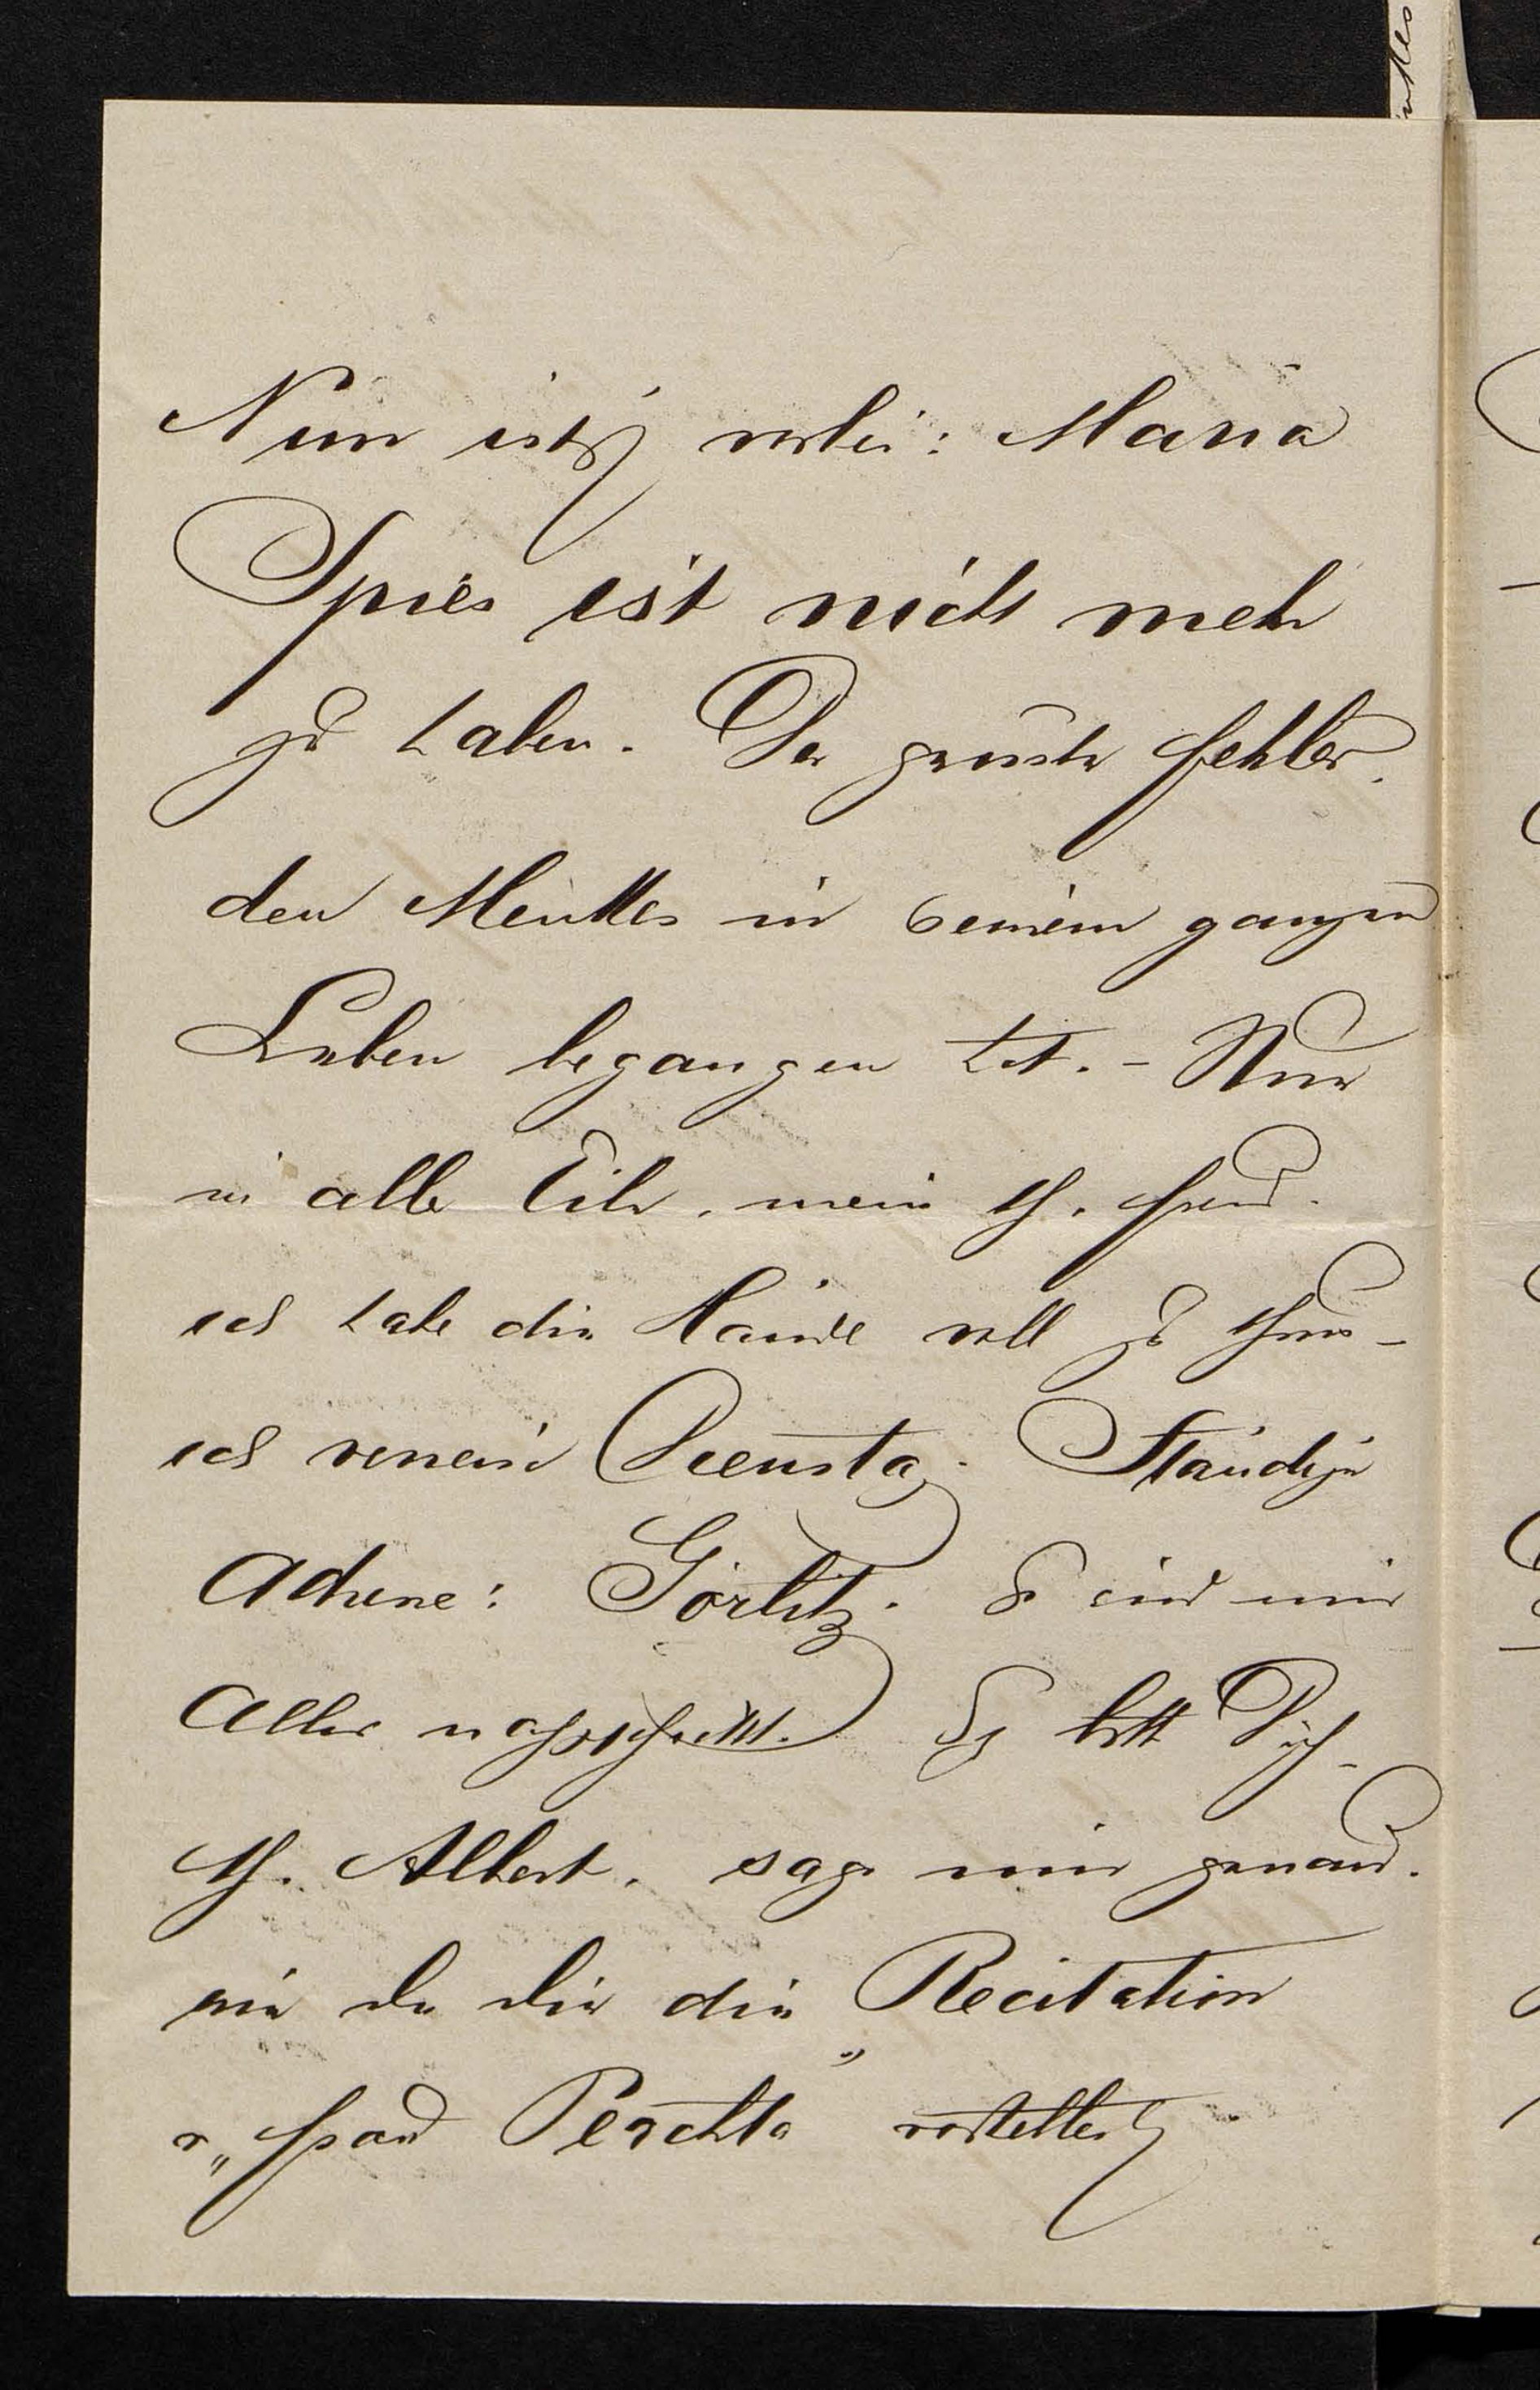 Nun ist's vorbei: Maria
Spies ist nicht mehr
zu haben. Der grösste Fehler,
den Menttes in seinem ganzen
Leben begangen hat. – Nur
in aller Eile, mein th. Freund.
ich habe die Hände voll zu thun –
ich verreise Dienstag. Ständige
Adresse: Görlitz. Es wird mir
Alles nachgeschickt. Ich bitt Dich,
th. Albert, sage mir genau,
wie Du Dir die Recitation
v. „Frau Perchta" vorstellest